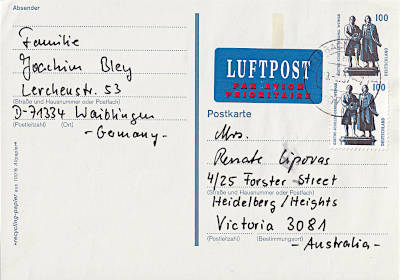 Absender
Familie
Joachim Bley
Lerchenstr. 53
(Straße und Hausnummer oder Postfach)
D-71334 Waiblingen
(Postleitzahl) (Ort)
- Germany -
LUFTPOST
PAR AVION
PRIORITAIRE
100
DEUTSCHLAND
100
DEUTSCHLAND
Postkarte
Mrs.
Renate Lipovas
4/25 Forster Street
(Straße und Hausnummer oder Postfach)
Heidelberg/Heights
Victoria 3081
(Postleitzahl) (Bestimmungsort)
- Australia -